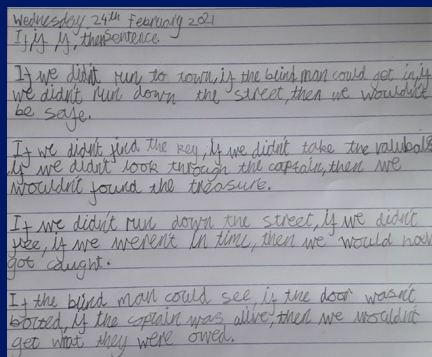 Wednesday 24th February 2021
If, if, if, then sentence.
If we didn't run to town, if the blind man could get in, if
we didn't run down the street, then we wouldn't
be safe.
If we didn't find the key, if we didn't take the
if we didn't look through the captain, then we
wouldn't found the treasure.
If we didn't run down the street, if we didn't
if we weren't in time, then we would
got caught.
If the blind man could see, if the door wasn't
bolted, if the captain was alive, then we wouldn't
get what they were owed.